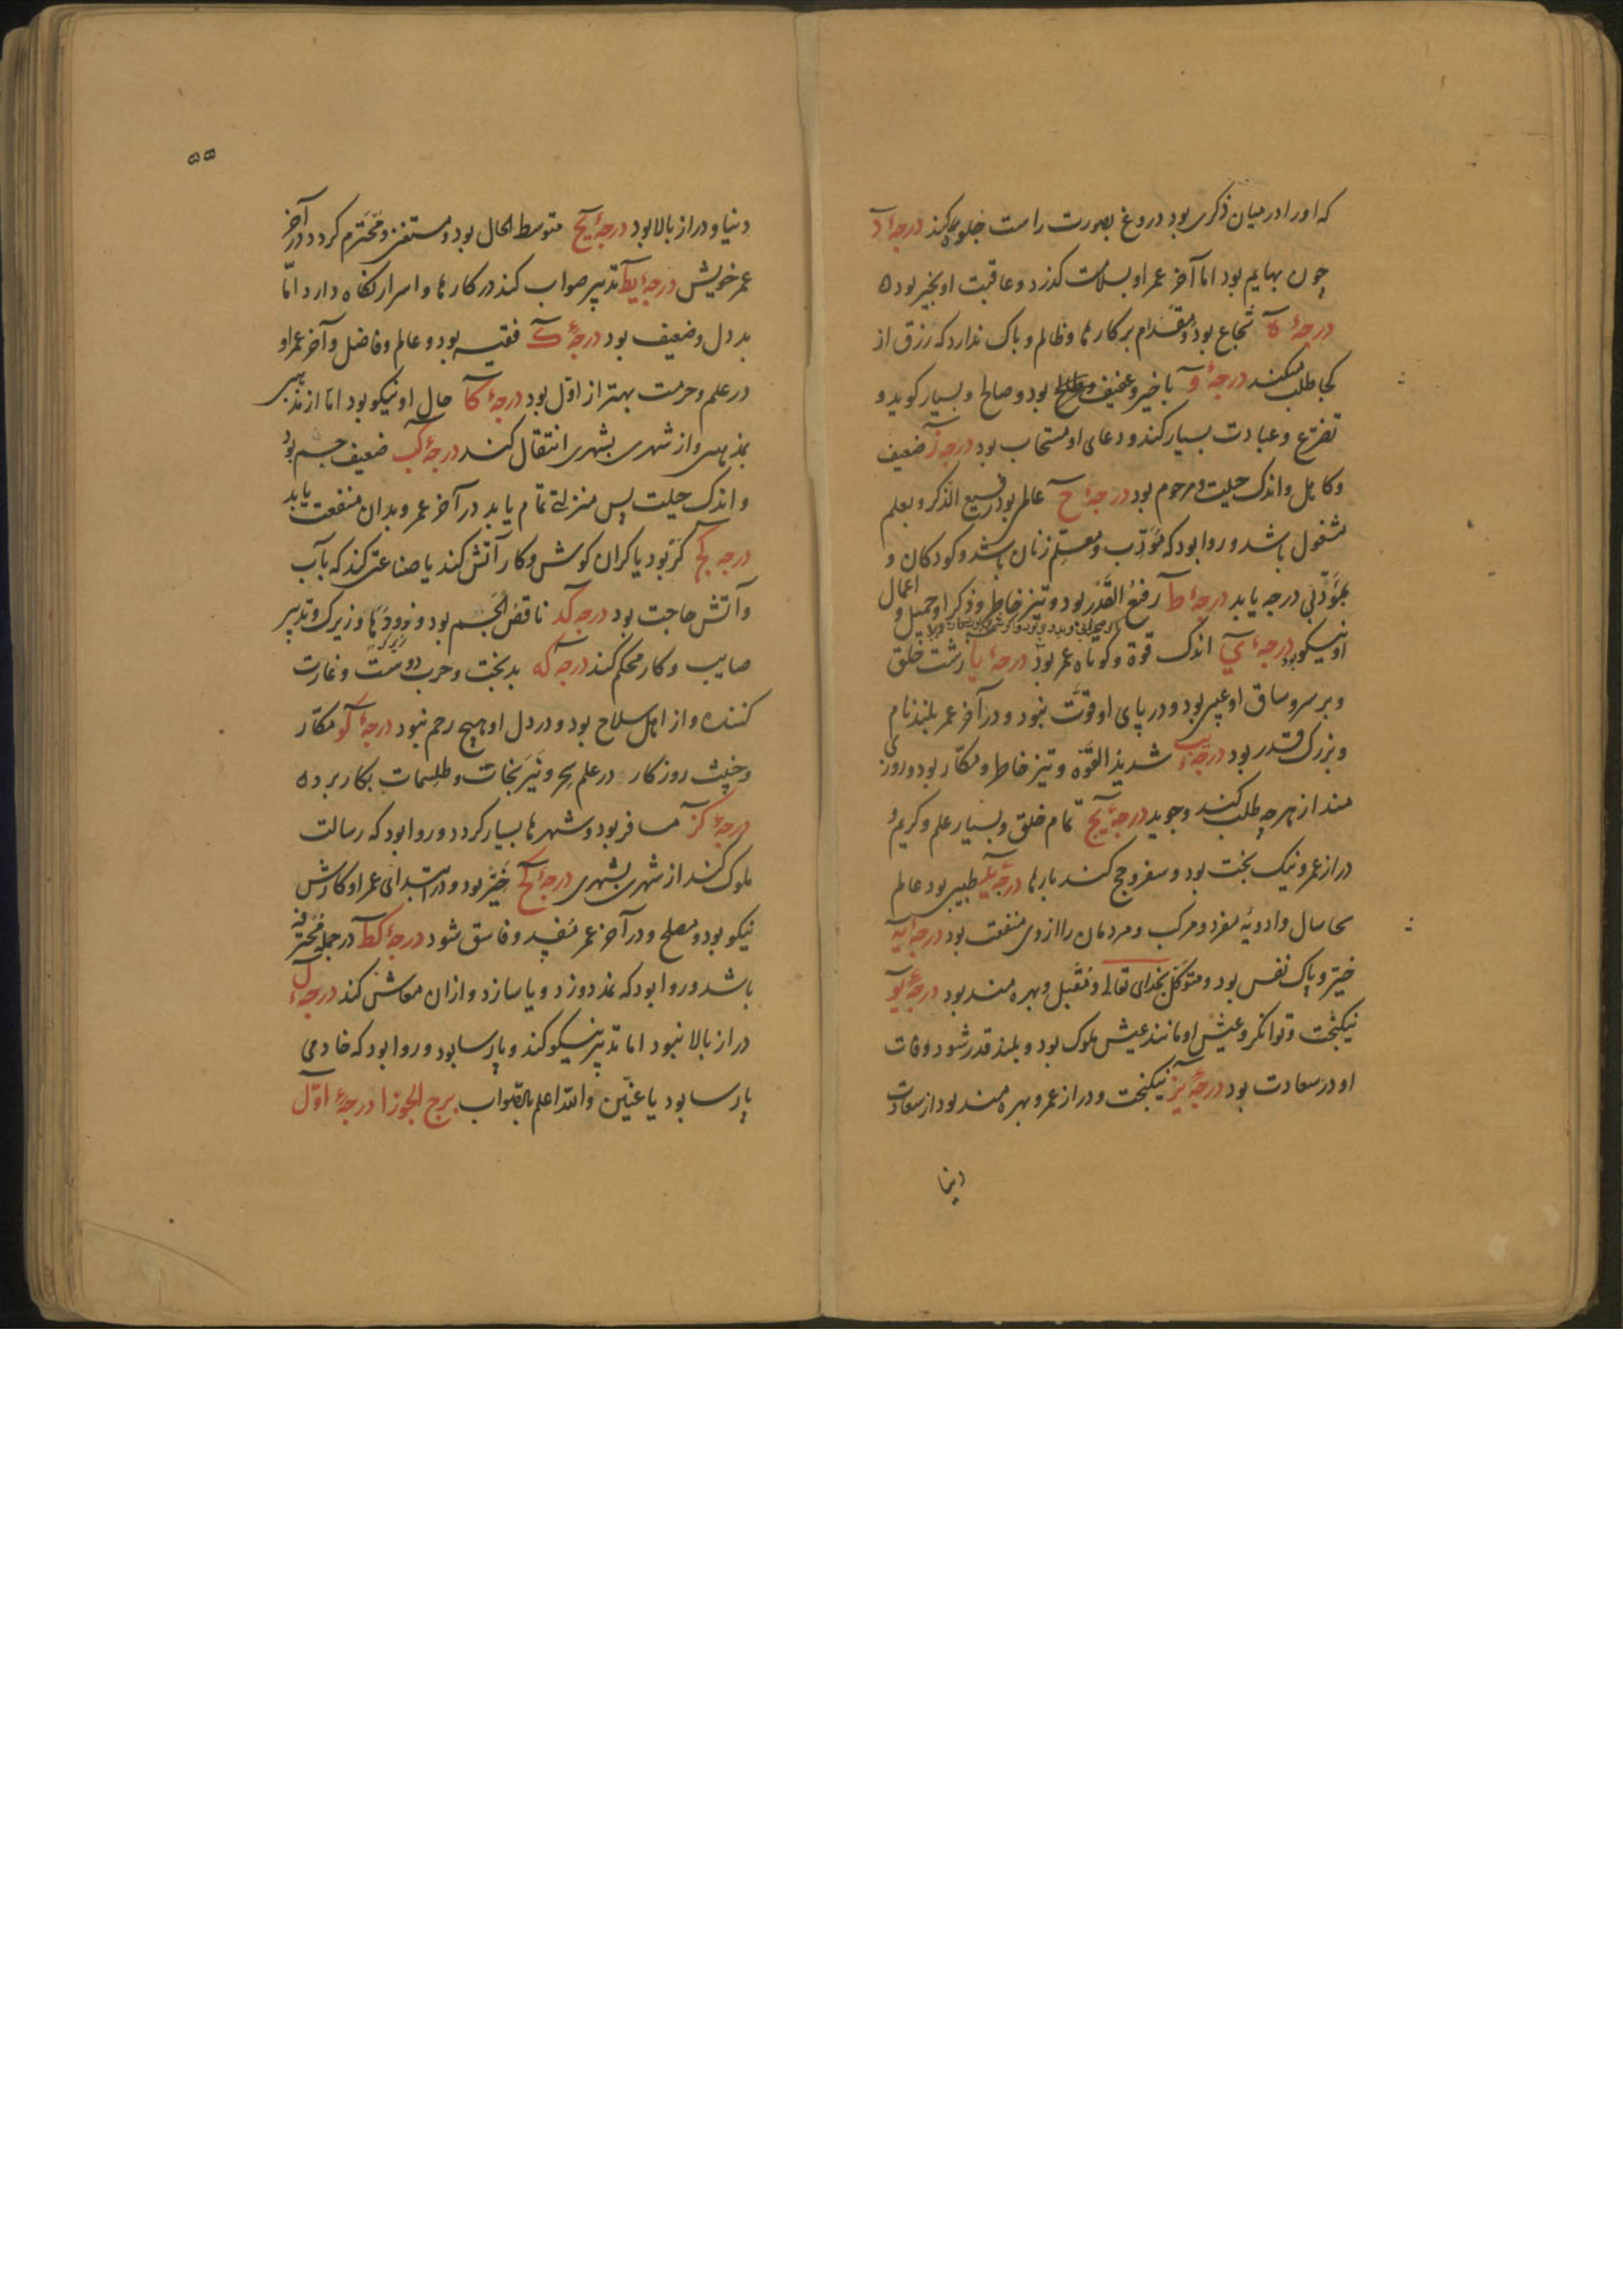 که او را در میان ذکری بود دروغ بصورت راست جلوه کند درجهٔ د
چون بهایم بود اما آخر عمر او بسلامت گذرد و عاقبت او بخیر بود ه
درجهٔ ه شجاع بود و مقدام بر کارها و ظالم و باک ندارد که رزق از
کجا طلب میکند درجهٔ و با خیر و عفیف بود و صالح و بسیار گوید و
تضرّع و عبادت بسیار کند و دعای او مستجاب بود درجهٔ ز ضعیف
و کاهل و اندک حیلت و مرحوم بود درجهٔ ح عالم بود رفیع الذکر و بعلم
مشغول باشد و روا بود که مؤدّب و معلّم زنان باشد و کودکان و
بمؤدّبی درجه یابد درجهٔ ط رفیع القدر بود و تیز خاطر و ذکر او جمیل و اعمال
او نیکو بود درجهٔ ی اندک قوة و کوتاه عمر بود درجهٔ یا زشت خلق
و بر سر و ساق او عیبی بود و در پای او قوّت نبود و در آخر عمر بلند نام
و بزرک قدر بود درجهٔ یب شدید القوّه و تیز خاطر و مکّار بود و روزی
مند از هر چه طلب کند و جوید درجهٔ یج تمام خلق و بسیار علم و کریم و
دراز عمر و نیک بخت بود و سفر و حج کند بارها درجهٔ ید طبیبی بود عالم
و ادویهٔ مفرد و مرکب و مردمان را از وی منفعت بود درجهٔ یه
خیّر و پاک نفس بود و متوکّل بخدای تعالی و مقبل و بهره مند بود درجهٔ یو
نیکبخت و توانگر و عیش او مانند عیش ملوک بود و بلند قدر شود و وفات
او در سعادت بود درجهٔ یز نیکبخت و دراز عمر و بهره مند بود از سعادت
دنیا
۵۵
دنیا و دراز بالا بود درجهٔ یح متوسط الحال بود و مستغنی و محترم کردد در آخر
عمر خویش درجهٔ یط تدبیر صواب کند در کارها و اسرار نگاه دارد امّا
بد دل و ضعیف بود درجهٔ ک فقیه بود و عالم و فاضل و آخر عمر او
در علم و حرمت بهتر از اوّل بود درجهٔ کا حال او نیکو بود امّا از مذهبی
بمذهبی و از شهری بشهری انتقال کند درجهٔ کب ضعیف جسم بود
و اندک حیلت پس منزلتی تمام یابد در آخر عمر و بدان منفعت یابد
درجه کج کر بود یا گران گوش و کار آتش کند یا صناعتی کند که بآب
و آتش حاجت بود درجه کد ناقص الجسم بود و زیرک و تدبیر
صایب و کار محکم کند درجه که بدبخت و حرب دوست و غارت
کننده و از اهل سلاح بود و در دل او هیچ رحم نبود درجهٔ کو مکّار
و خبیث روزگار در علم سحر و نیرنجات و طلسمات بکار برد ه
درجهٔ کز مسافر بود و شهرها بسیار کردد و روا بود که رسالت
ملوک کند از شهری بشهری درجهٔ کح خیّر بود و در ابتدائی عمر او کارش
نیکو بود و مصلح و در آخر عمر مفسد و فاسق شود درجهٔ کط در جمله محترفه
باشد و روا بود که نمد دوزد و یا سازد و از ان معاش کند درجهٔ ل
دراز بالا نبود اما تدبیر نیکو کند و پارسا بود و روا بود که خادمی
پارسا بود یا عنّین والله اعلم بالصّواب برج الجوزا درجهٔ اوّل